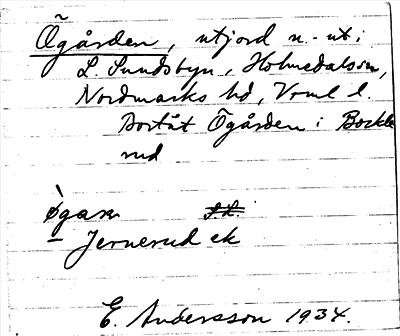 Ögården, utjord n.- ut i
L. Sundsbyn, Holmedals sn,
Nordmarks hd, Vrml l.
Bortåt Ögården i Bockle
rud
ø̀gaṣn
– Jernerud ek
E. Andersson 1934.